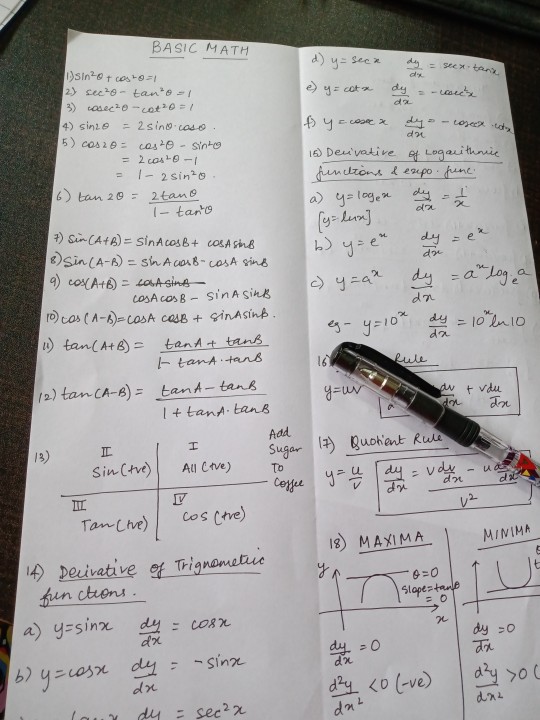 BASIC MATH
1) sin²θ + cos²θ = 1
2) sec²θ - tan²θ = 1
3) cosec²θ - cot²θ = 1
4) sin2θ = 2sinθ·cosθ.
5) cos2θ = cos²θ - sin²θ
= 2cos²θ - 1
= 1 - 2sin²θ.
6) tan 2θ = 2tanθ / 1 - tan²θ
7) Sin(A+B) = SinAcosB + cosAsinB
8) Sin(A-B) = sinAcosB - cosA sinB
9) cos(A+B) = cosAsinB
cosAcosB - sinAsinB
10) cos(A-B) = cosA cosB + sinAsinB.
11) tan(A+B) = tanA + tanB / 1 - tanA·tanB
12) tan(A-B) = tanA - tanB / 1 + tanA·tanB
13)
II
Sin(+ve)
I
All(+ve)
III
Tan(+ve)
IV
Cos(+ve)
Add
Sugar
To
Coffee
14) Derivative of Trignometric
functions.
a) y=sinx dy/dx = cosx
b) y=cosx dy/dx = -sinx
dy = sec²x
d) y = secx dy/dx = secx·tanx
e) y = cotx dy/dx = -cosec²x
f) y = cosec x dy/dx = -cosecx·cotx
15) Derivative of Logarithmic
functions & expo. func.
a) y = logₑx dy/dx = 1/x
[y = lnx]
b) y = eˣ dy/dx = eˣ
c) y = aˣ dy/dx = aˣ logₑa
eg - y = 10ˣ dy/dx = 10ˣ ln10
16) Rule
y = uv dv/dx + v du/dx
17) Quotient Rule
y = u/v dy/dx = v du/dx - u / v²
18) MAXIMA
y
θ=0
slope=tanθ
= 0
x
dy/dx = 0
d²y/dx² < 0 (-ve)
MINIMA
dy/dx = 0
d²y/dx² > 0 (